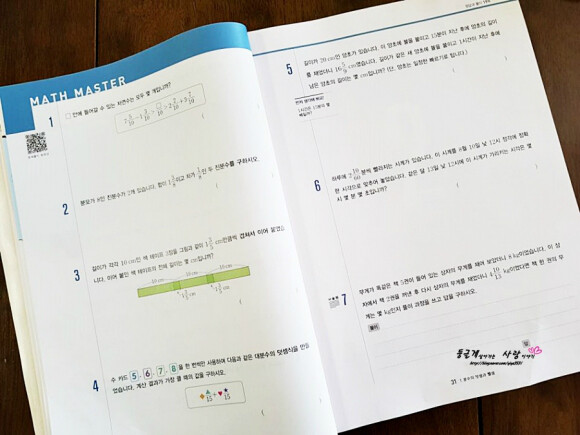 MATH MASTER
1
□ 안에 들어갈 수 있는 자연수는 모두 몇 개입니까?
2
분모가 8인 진분수가 2개 있습니다. 합이 1 3/8이고 차가 1/8인 두 진분수를 구하시오.
3
길이가 각각 10 cm인 색 테이프 3장을 그림과 같이 1 3/5 cm만큼씩 겹쳐서 이어 붙였습
니다. 이어 붙인 색 테이프의 전체 길이는 몇 cm입니까?
10 cm 10 cm 10 cm
4
수 카드 5, 6, 7, 8 을 한 번씩만 사용하여 다음과 같은 대분수의 덧셈식을 만들
었습니다. 계산 결과가 가장 클 때의 값을 구하시오.
5
길이가 20 cm인 양초가 있습니다. 이 양초에 불을 붙이고 15분이 지난 후에 양초의 길이
를 재었더니 16 5/9 cm였습니다. 길이가 같은 새 양초에 불을 붙이고 1시간이 지난 후에
남은 양초의 길이는 몇 cm입니까? (단, 양초는 일정한 빠르기로 탑니다.)
먼저 생각해 봐요!
1시간은 15분의 몇
배일까?
6
하루에 2 10/60분씩 빨라지는 시계가 있습니다. 이 시계를 8월 10일 낮 12시 정각에 정확
한 시각으로 맞추어 놓았습니다. 같은 달 13일 낮 12시에 이 시계가 가리키는 시각은 몇
시 몇 분 몇 초입니까?
7
무게가 똑같은 책 5권이 들어 있는 상자의 무게를 재어 보았더니 8 kg이었습니다. 이 상
자에서 책 2권을 꺼낸 후 다시 상자의 무게를 재었더니 4 10/13 kg이었다면 책 한 권의 무
게는 몇 kg인지 풀이 과정을 쓰고 답을 구하시오.
풀이
답
31 1 분수의 덧셈과 뺄셈